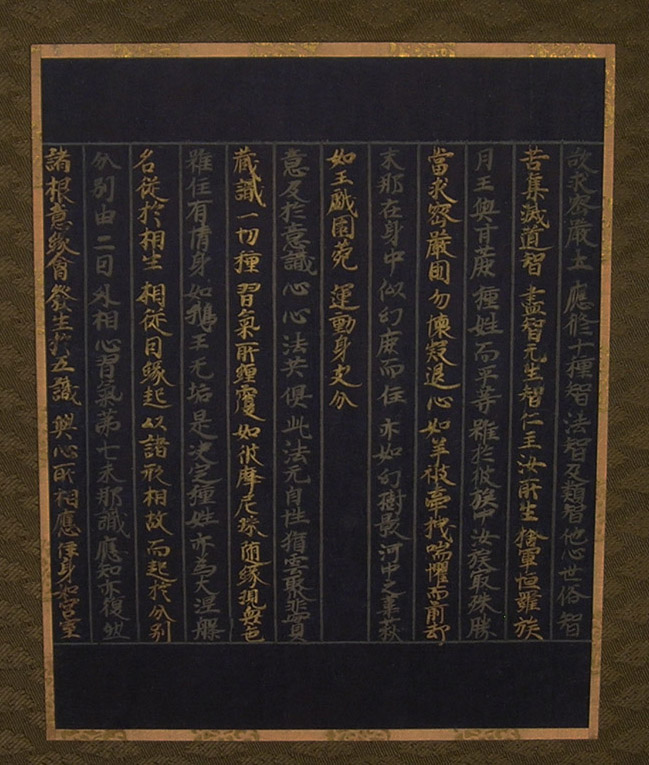 故求密嚴土應修十種智法智及類智他心世俗智
苦集滅道智盡智无生智仁主汝所生
月王與甘蔗種姓而平等雖於彼族中汝族最殊勝
當求密嚴國勿懷疑退心如羊被牽拽喘懼而前却
末那在身中似幻鹿而住亦如幻樹影河中之葦荻
如王戲園苑運動身支分
意及於意識心心法共俱此法无自性猶雲聚非實
藏識一切種習氣所纏覆如彼摩尼珠隨緣現衆色
雖住有情身如鵝王无垢是决定種姓亦為大涅槃
名從於相生相從因緣起以諸形相故而起於分別
分別由二因外相心習氣第七末那識應知亦復然
諸根意緣會發生於五識與心所相應住身如宮室